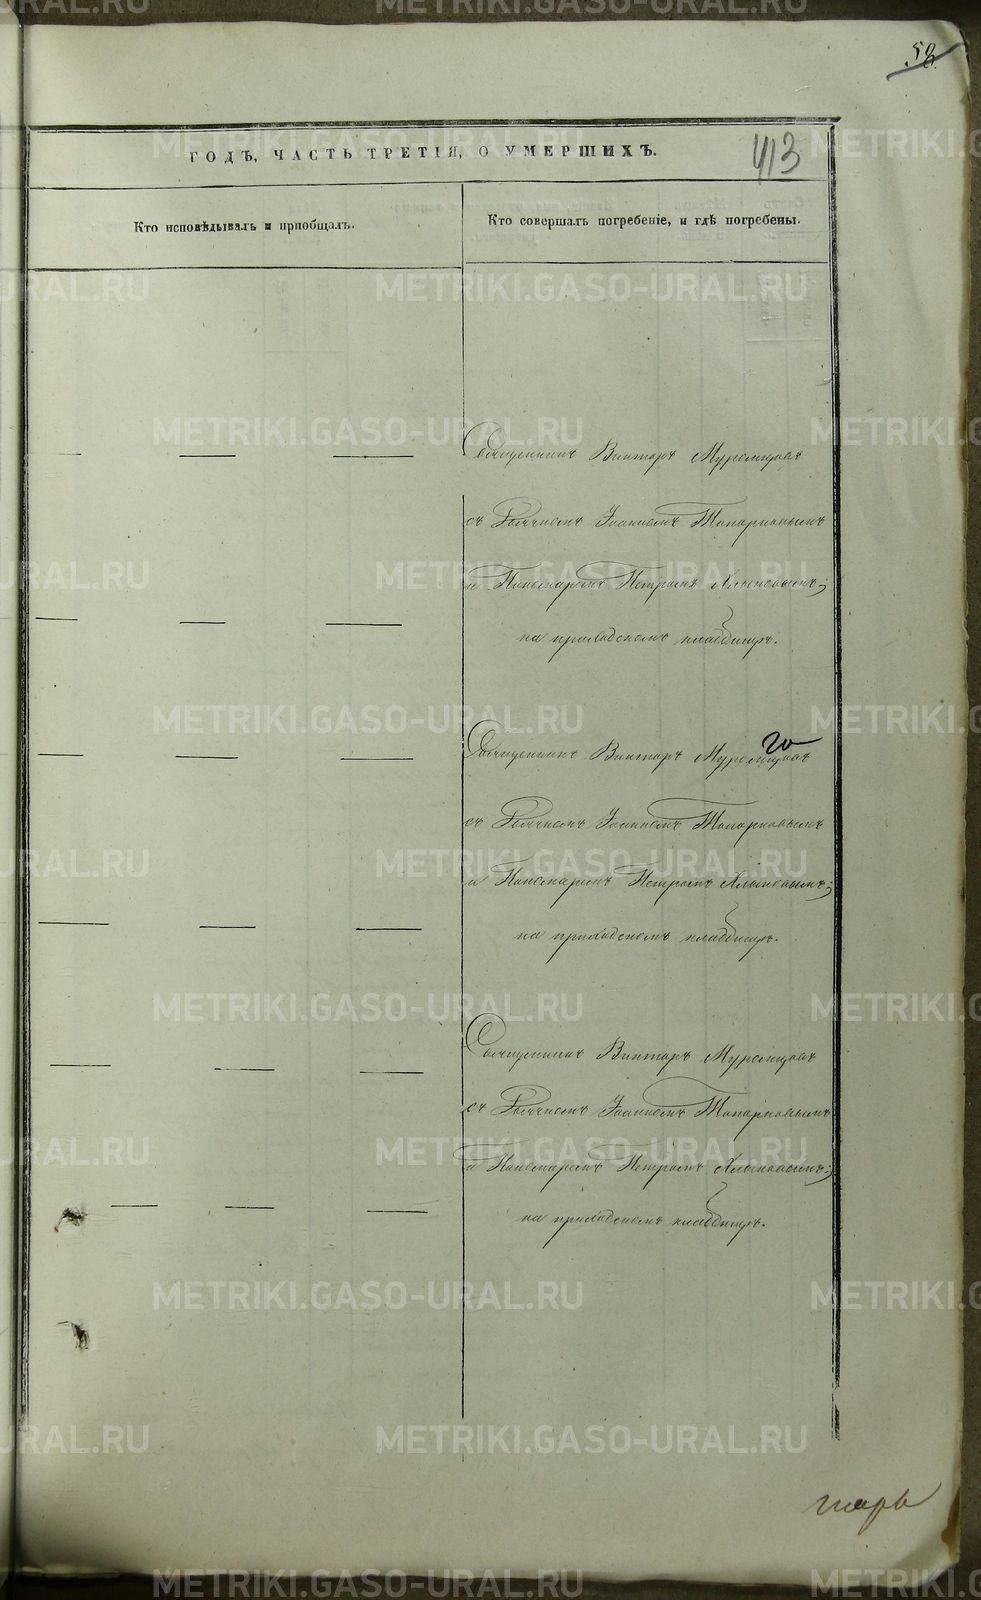 58
413
ГОДЪ, ЧАСТЬ ТРЕТІЯ, О УМЕРШИХЪ.
Кто исповѣдывалъ и пріобщалъ.
Кто совершалъ погребеніе, и гдѣ погребены.
Священникъ Викторъ Муромцовъ
съ Дьячкомъ Іоанномъ Топорковымъ
и Пономаремъ Петромъ Хлыновымъ;
на приходскомъ кладбищѣ.
го
Священникъ Викторъ Муромцовъ
съ Дьячкомъ Іоанномъ Топорковымъ
и Пономаремъ Петромъ Хлыновымъ;
на приходскомъ кладбищѣ.
Священникъ Викторъ Муромцовъ
съ Дьячкомъ Іоанномъ Топорковымъ
и Пономаремъ Петромъ Хлыновымъ;
на приходскомъ кладбищѣ.
тарь
METRIKI.GASO-URAL.RU